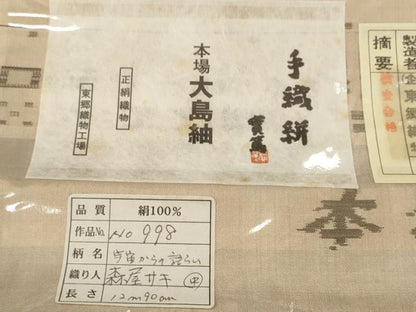 手織絣
本場 大島紬
正絹織物
東郷織物工場
製造者
摘要
品質 絹100%
作品No. No 998
柄名 宇宙からの語らい
織り人 森屋サキ
長さ 12m90cm
本